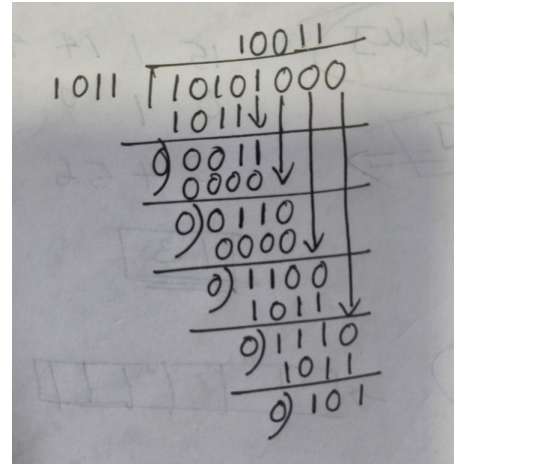 10011
1011 10101000
1011
0)0011
0000
0)0110
0000
0)1100
1011
0)1110
1011
0)101